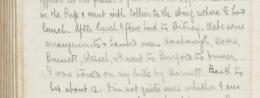 in the Pup & went with Collier to the dining where I had
lunch. After lunch I flew back to Witney. Made some
arrangements & handed over. Marlborough, Moore,
Barnett, Wessel, & I went to Burford to dinner.
I was towed on my bike by Barnett. Back to
bed about 12. I'm not quite sure whether I am